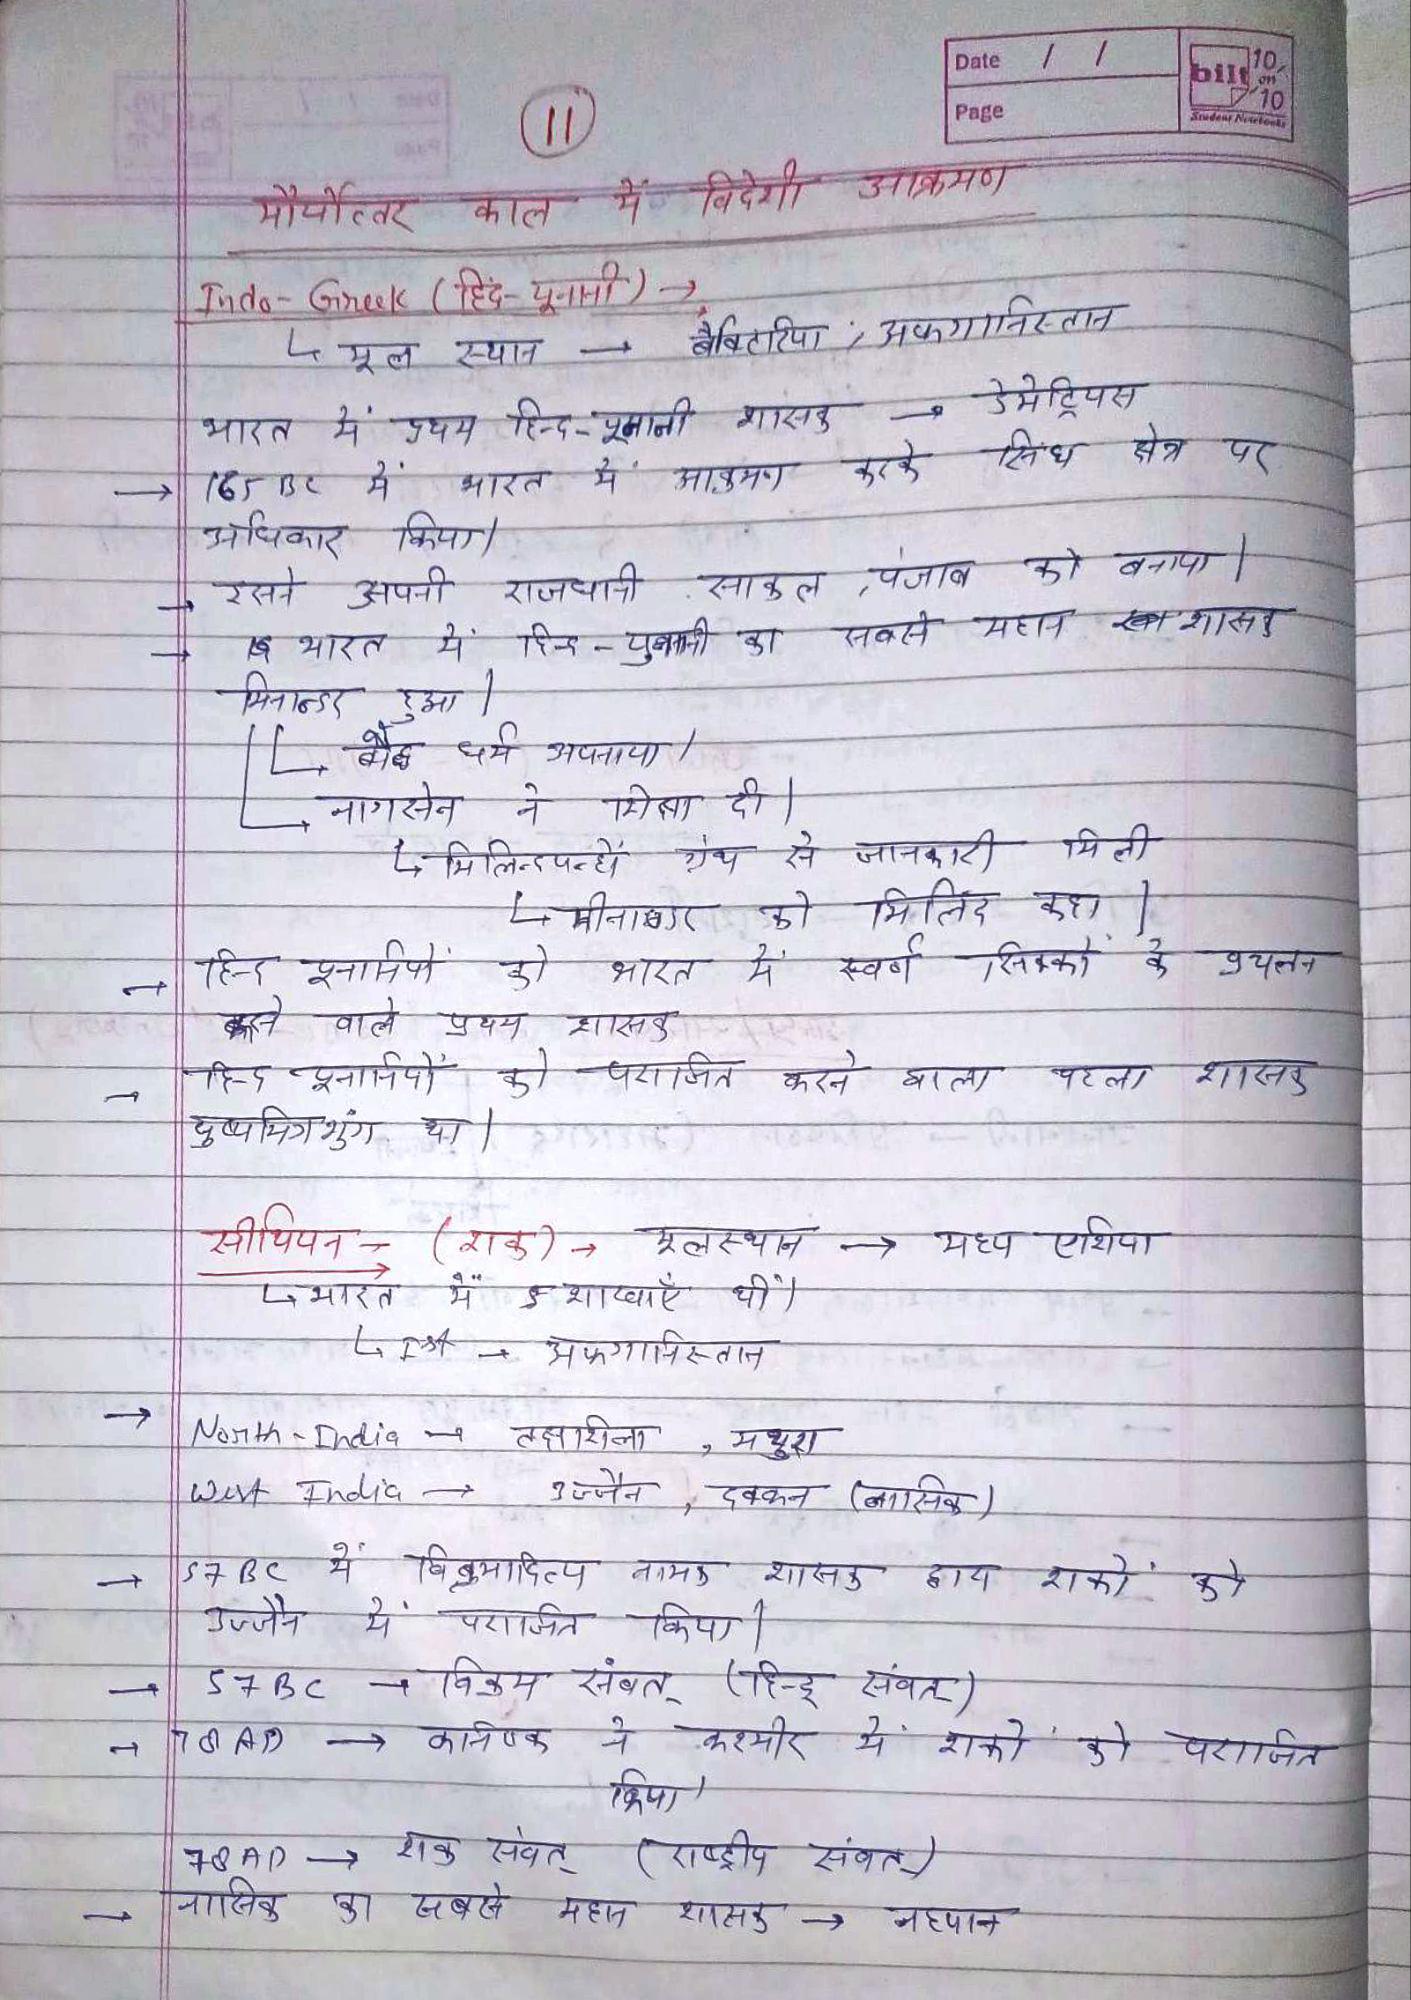 Date / /
Page
bilt 10 on 10
Student Notebooks
11
मौर्योत्तर काल में विदेशी आक्रमण
Indo-Greek (हिंद-यूनानी) →
↳ मूल स्थान → बैक्टिरिया, अफगानिस्तान
भारत में प्रथम हिन्द-यूनानी शासक → डेमेट्रियस
→ 165 BC में भारत में आक्रमण करके सिंध क्षेत्र पर
अधिकार किया।
→ इसने अपनी राजधानी साकल, पंजाब को बनाया।
→ भारत में हिन्द-युनानी का सबसे महान शासक
मिनान्डर हुआ।
↳ बौद्ध धर्म अपनाया।
↳ नागसेन ने शिक्षा दी।
↳ मिलिन्दपन्हों ग्रंथ से जानकारी मिली
↳ मीनान्डर को मिलिंद कहा।
→ हिन्द यूनानियों को भारत में स्वर्ण सिक्कों के प्रचलन
करने वाले प्रथम शासक
→ हिन्द यूनानियों को पराजित करने वाला पहला शासक
पुष्यमित्र शुंग था।
सीथियन → (शक) → मूलस्थान → मध्य एशिया
↳ भारत में 5 शाखाएँ थीं।
↳ Ist → अफगानिस्तान
→ North-India → तक्षशीला, मथुरा
West India → उज्जैन, दक्कन (नासिक)
→ 57 BC में विक्रमादित्य नामक शासक द्वारा शकों को
उज्जैन में पराजित किया।
→ 57 BC → विक्रम संवत् (हिन्दू संवत्)
→ 78 AD → कनिष्क ने कश्मीर में शकों को पराजित
किया।
78 AD → शक संवत् (राष्ट्रीय संवत्)
→ नासिक का सबसे महान शासक → नहपान